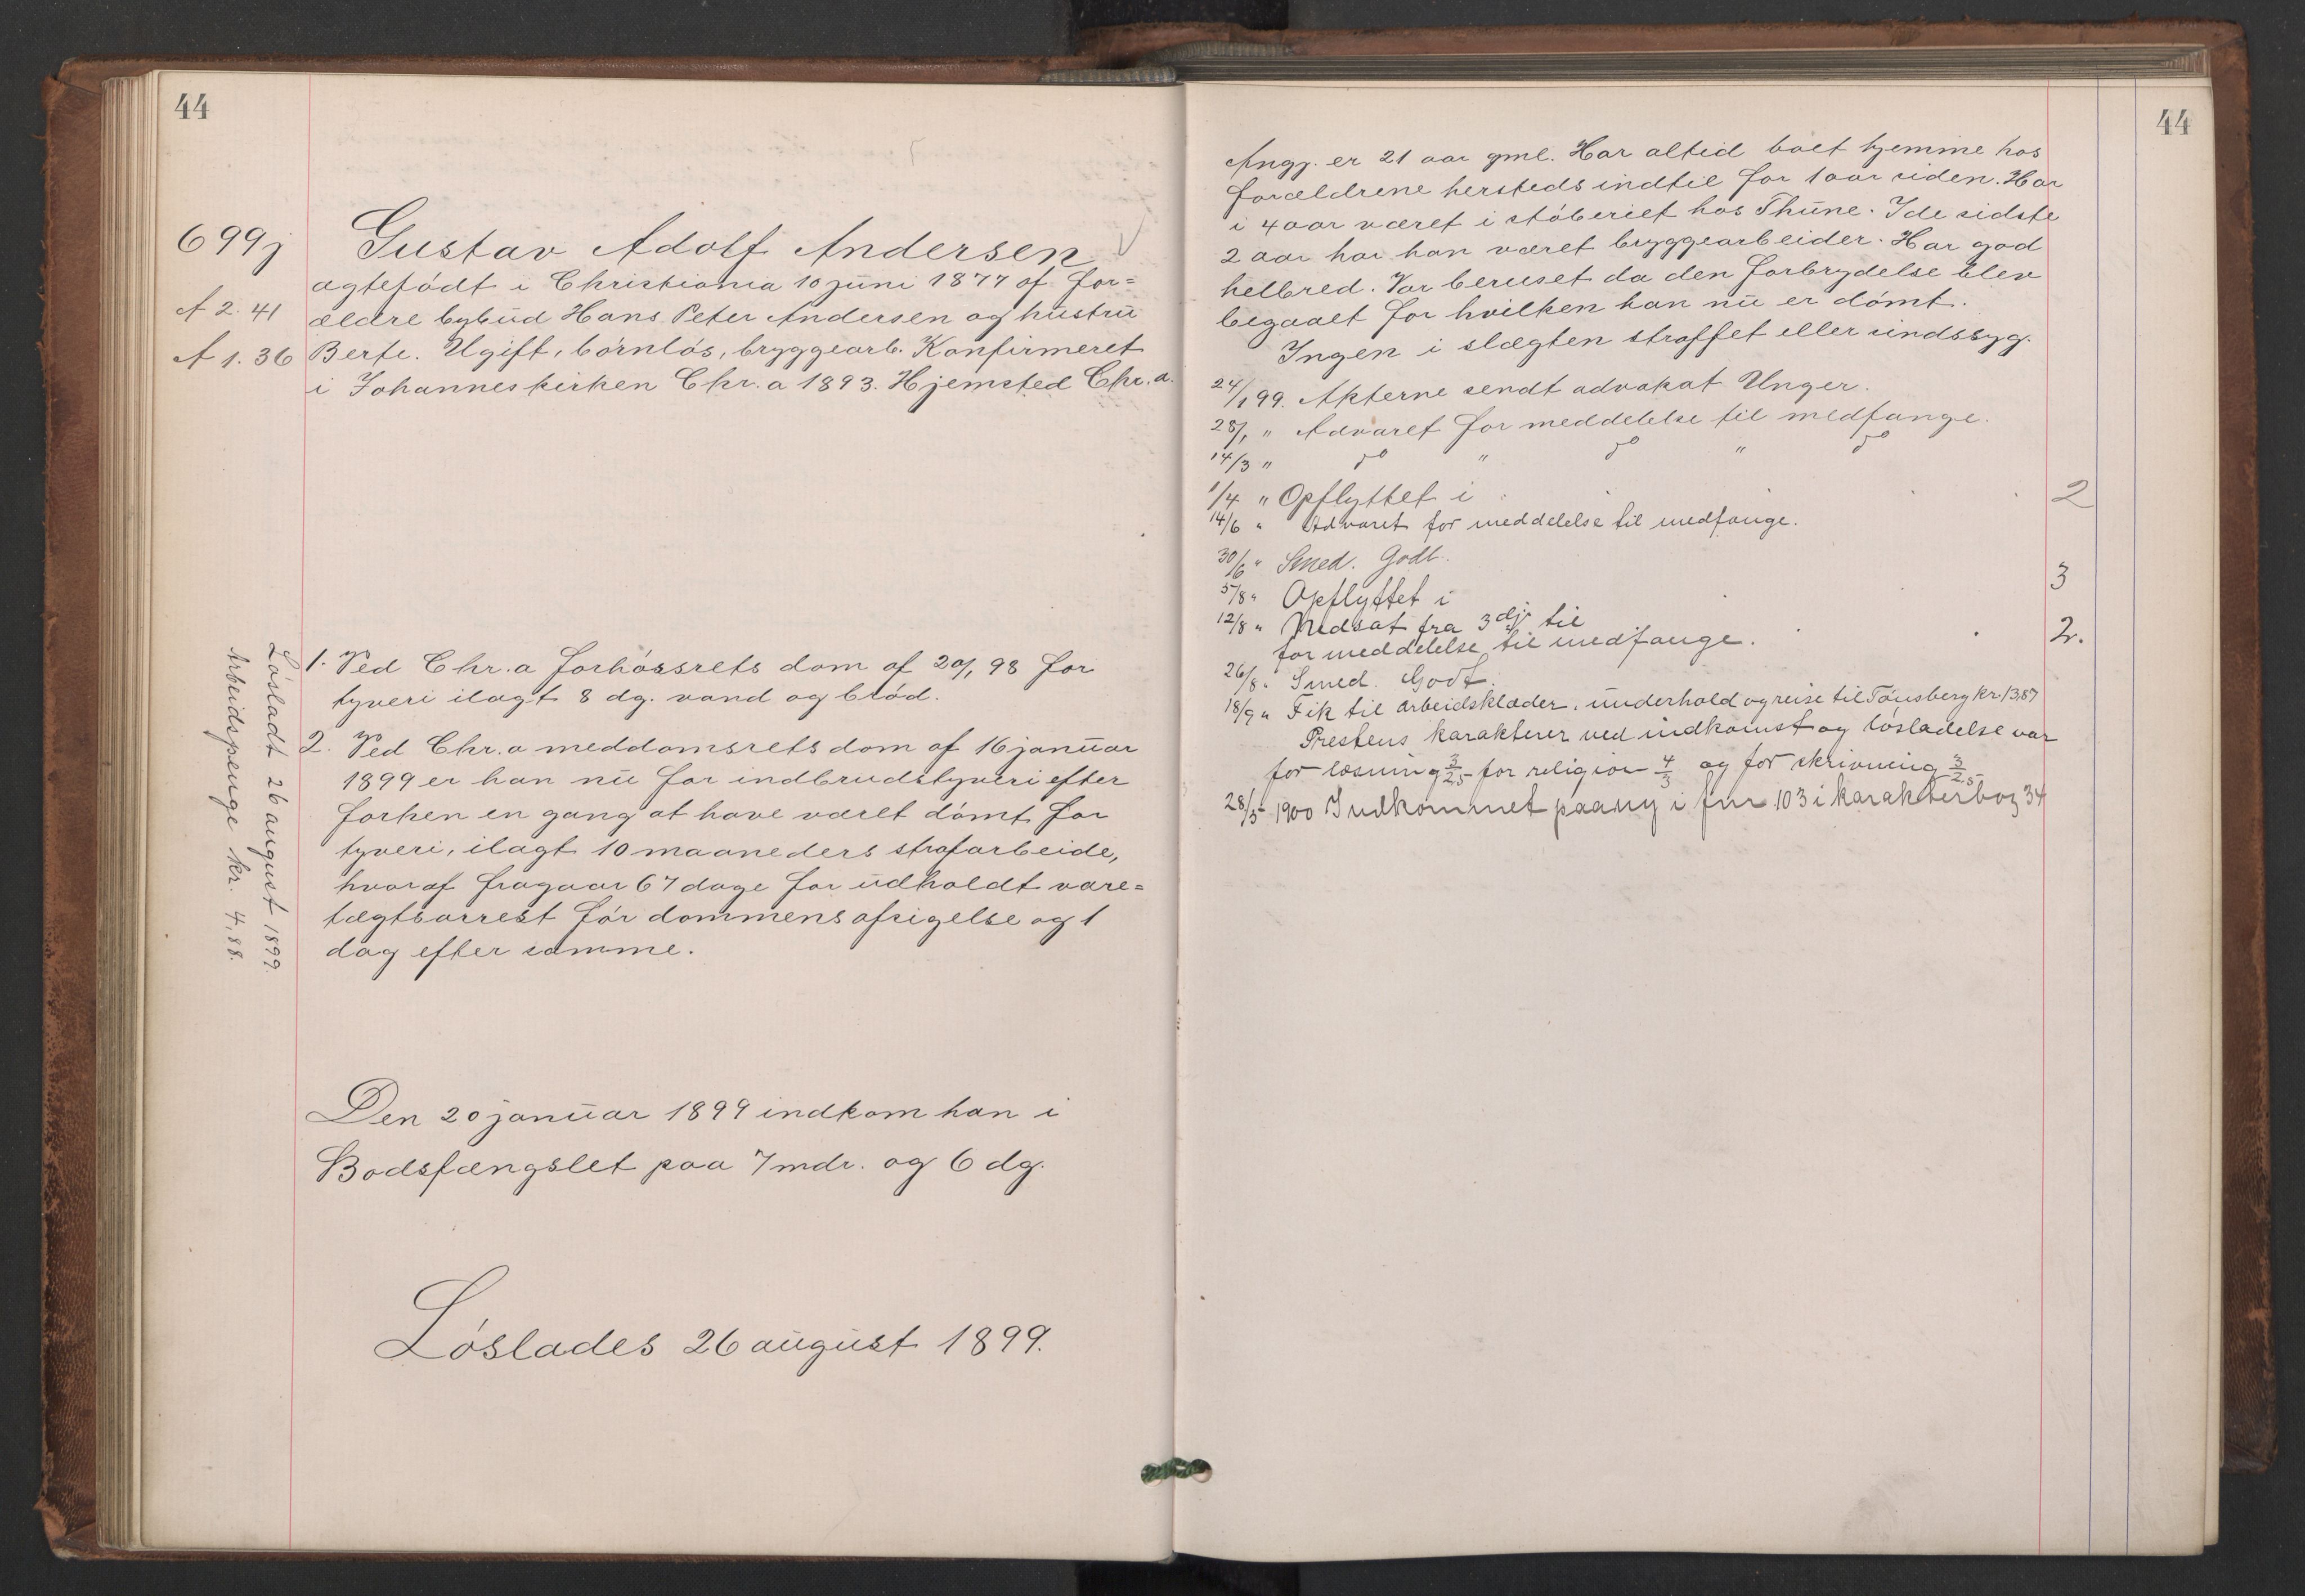 44
699j Gustav Adolf Andersen
ægtefödt i Christiania 10 juni 1877 af for=
A 2. 41 ældre bybud Hans Peter Andersen og hustru
A 1. 36 Berte. Ugift, börnlös, bryggearb. Konfirmeret
i Johanneskirken Chr.a 1893. Hjemsted Chr.a.
1. Ved Chr.a forhörsrets dom af 20/1 98 for
tyveri ilagt 8 dg. vand og bröd.
2. Ved Chr.a meddomsrets dom af 16 januar
1899 er han nu for indbrudstyveri efter
forhen en gang at have været dömt for
tyveri, ilagt 10 maaneders strafarbeide,
hvoraf fragaar 67 dage for udholdt vare=
tægtsarrest för dommens afsigelse og 1
dag efter samme.
Lösladt 26 august 1899.
Arbeidspenge kr. 4,88.
Den 20 januar 1899 indkom han i
Bodsfængslet paa 7 mdr. og 6 dg.
Löslades 26 august 1899.
44
Angj. er 21 aar gml. Har altid boet hjemme hos
forældrene hersteds indtil for 1 aar siden. Har
i 4 aar været i stöberiet hos Thune. I de sidste
2 aar har han været bryggearbeider. Har god
helbred. Var beruset da den forbrydelse blev
begaaet for hvilken han nu er dömt.
Ingen i slægten straffet eller sindssyg.
24/1 99. Akterne sendt advokat Unger.
28/1 " Advaret for meddelelse til medfange.
14/3 " do " do " do
1/4 " Opflyttet i 2
14/6 " Advaret for meddelelse til medfange.
30/6 " Smed. Godt.
5/8 " Opflyttet i 3
12/8 " Nedsat fra 3dje til
for meddelelse til medfange. 2.
26/8 " Smed. Godt.
18/9 " Fik til arbeidsklæder, underhold og reise til Tönsberg kr. 13,87
Prestens karakterer ved indkomst og lösladelse var
for læsning 3/2,5 for religion 4/3 og for skrivning 3/2,5
28/5 1900 Indkommet paany i fnr. 103 i karakterbog 34